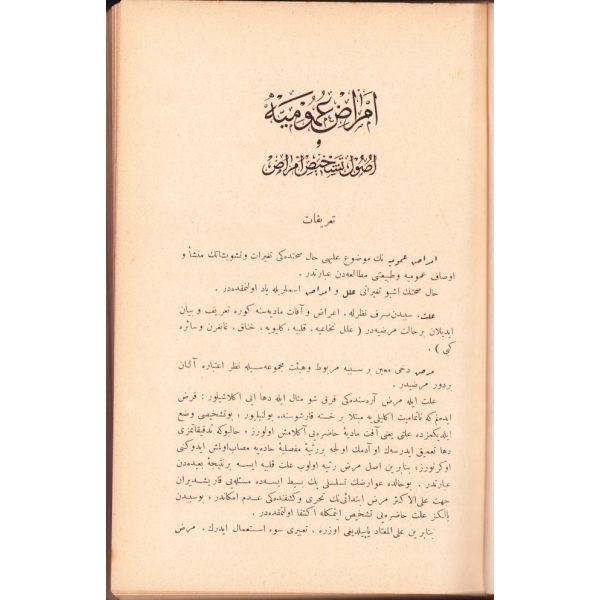 امراض عموميه
و
اصول تشخيص امراض
تعريفات
امراض عموميه نك موضوع علميهى حال صحتده كى تغيرات وتشويشاتك منشأ و
اوصاف عموميه وطبيعتنى مطالعه دن عبارتدر .
حال صحتك اشبو تغيراتى علل و امراض اسملريله ياد اولنمقده در .
علت، سببدن صرف نظرله، اعراض و آفات ماديه سنه كوره تعريف و بيان
ايديلان برحالت مرضيه در ( علل نخاعيه ، قلبيه ، كلويه ، خناق ، غانغرن وسائره
كبى ) .
مرض دخى معين بر سببه مربوط وهيئت مجموعه سيله نظر اعتباره آلنان
بردور مرضيدر .
علت ايله مرض آره سنده كى فرقى شو مثال ايله دها ايى اكلاشيلور : فرض
ايده لم كه قناتماميت اكليلى يه مبتلا بر خسته قارشوسنده بولنيليور ، بوتشخيصى وضع
ايلديكمزده علتى يعنى آفت ماديهٔ حاضره يى آكلامش اولورز ؛ حالبوكه تدقيقاتمزى
دها تعميق ايدرسه ك او آدمك اولجه بررثيهٔ مفصليهٔ حاده يه مصاب اولمش ايدوكنى
اوكرنورز؛ بناءبرين اصل مرض رثيه اولوب علت قلبيه ايسه برنتيجهٔ بعيده دن
عبارتدر . بوحالده عوارضك تسلسلى پك بسيط ايسه ده مسئله يى قاريشديران
جهت على الاكثر مرض ابتدائى نك تحرى وكشفنده كى عدم امكاندر ؛ بوسببدن
يالكز علت حاضره يى تشخيص ايتمكله اكتفا اولنمقده در .
بناءبرين على المعتاد ياپيلديغى اوزره ، تعبيرى سوء استعمال ايدرك ، مرض